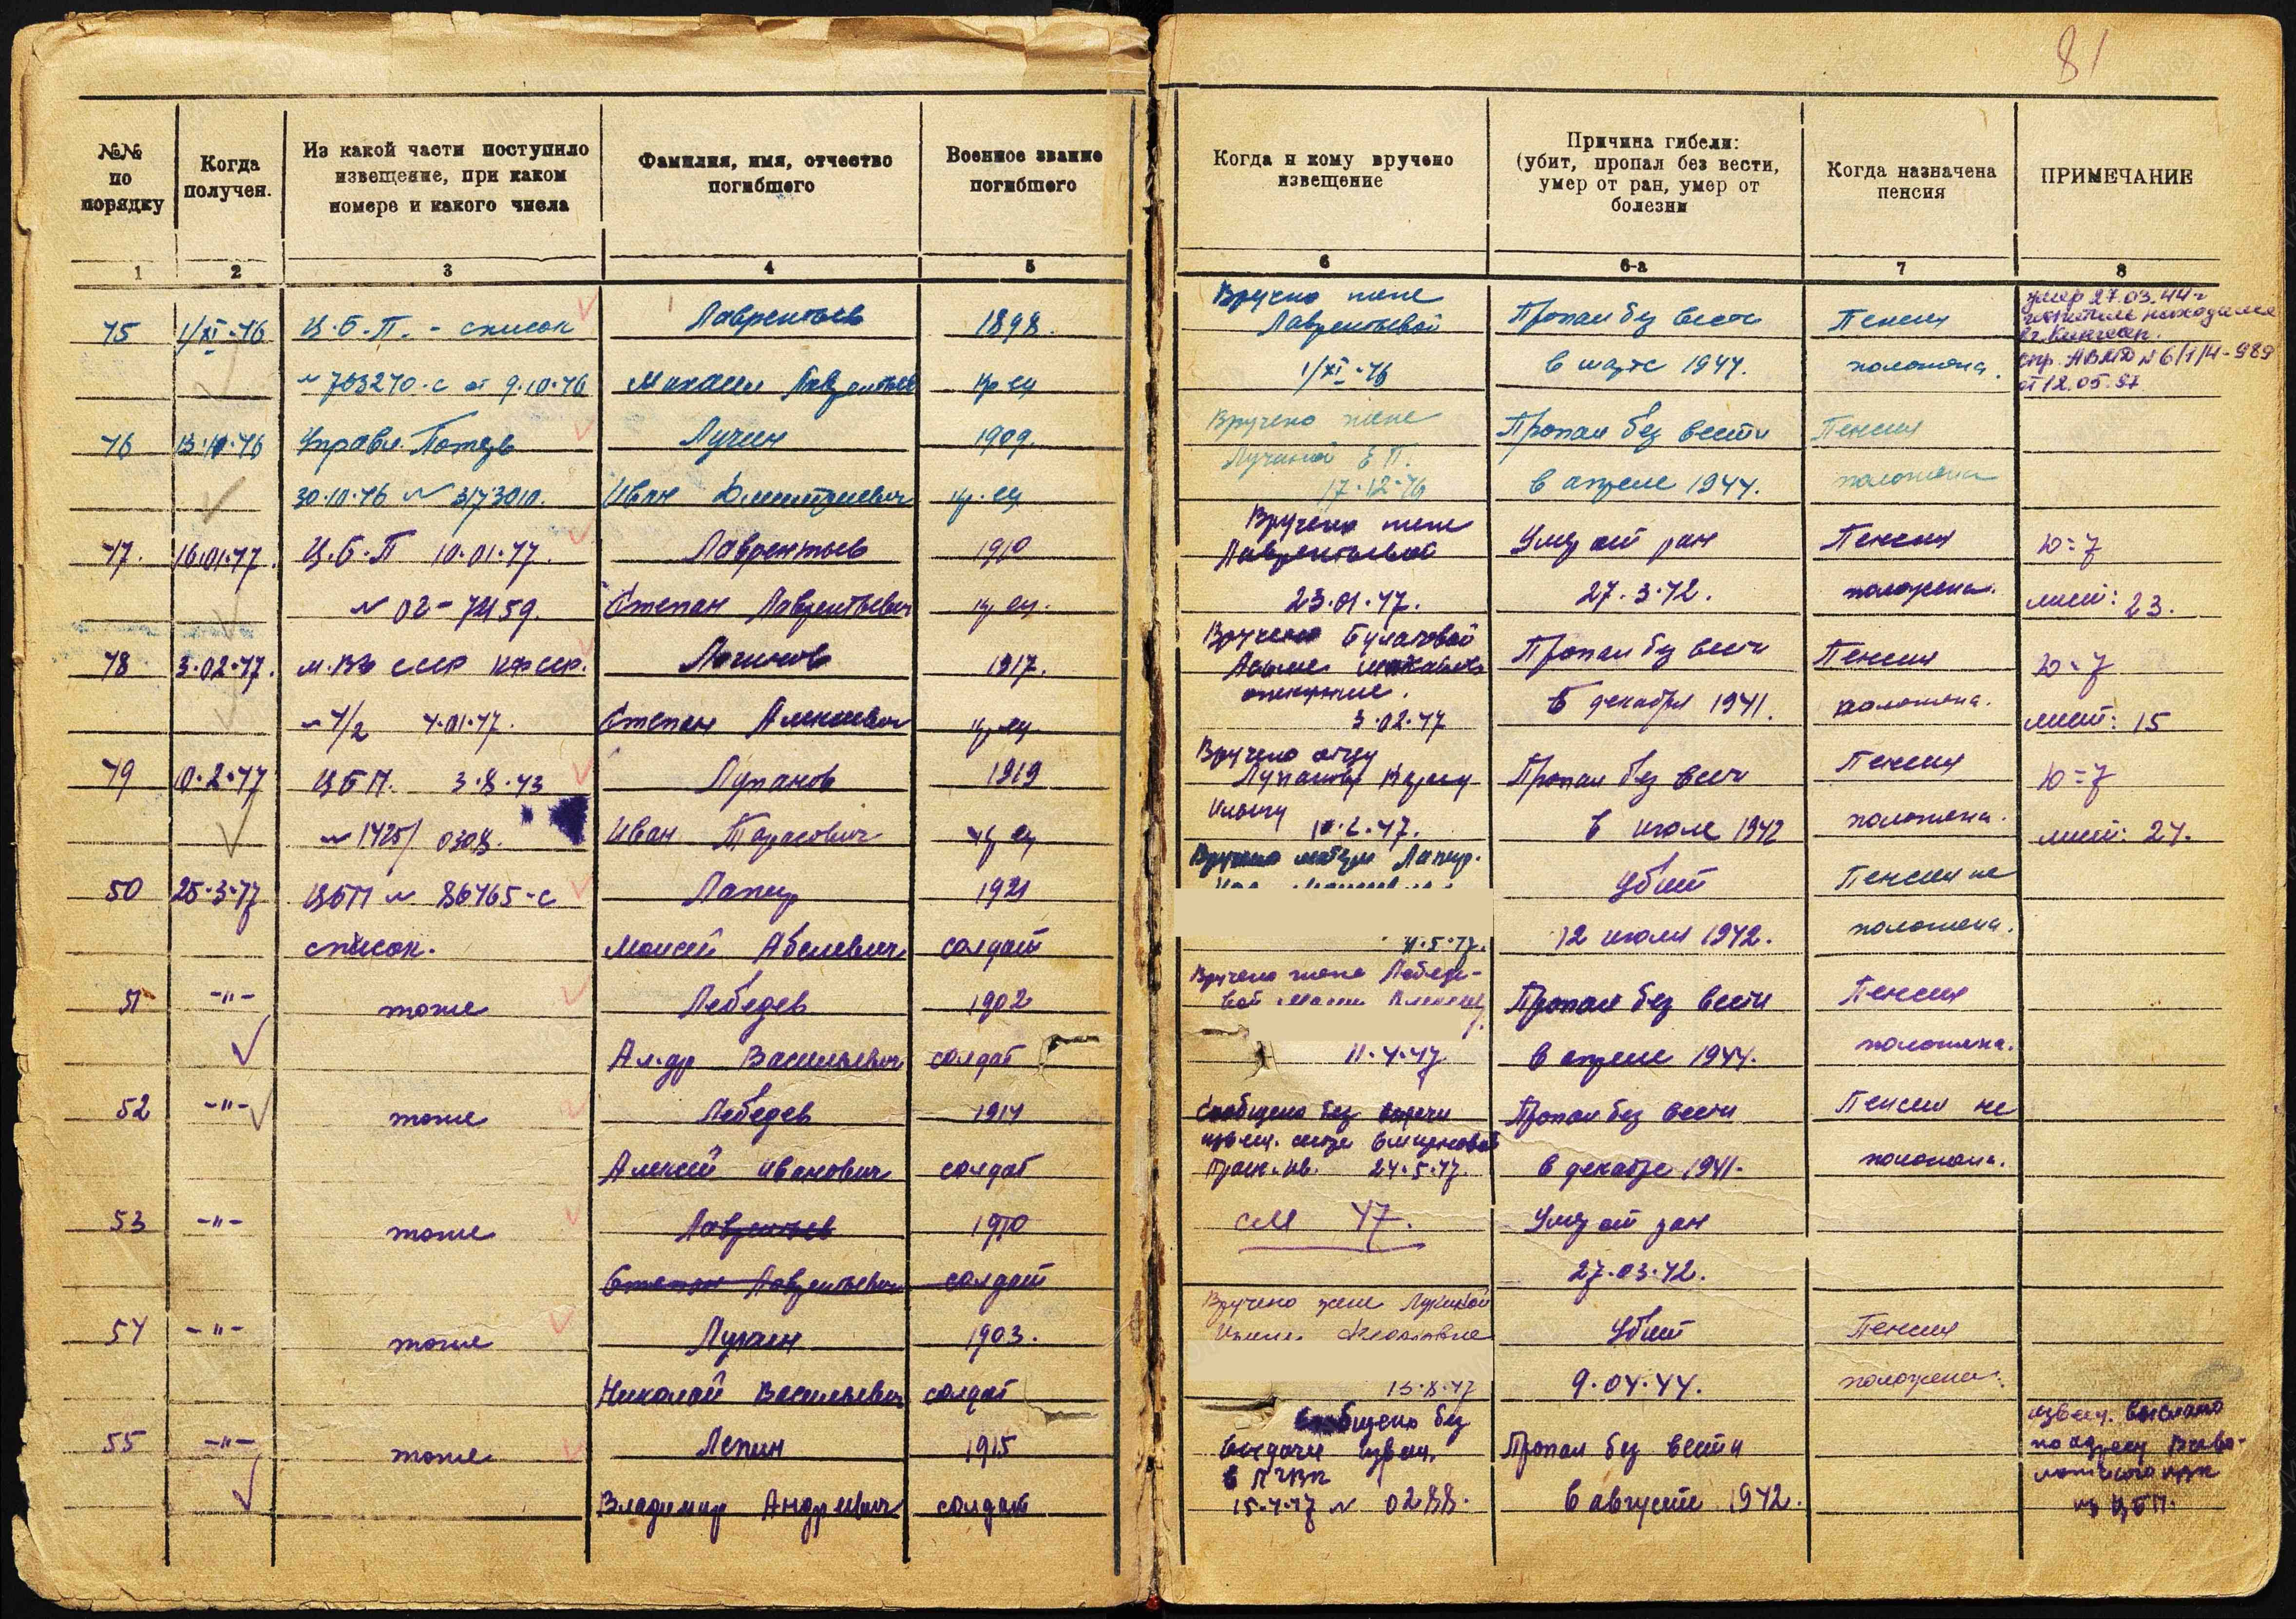 81
№№ по порядку
Когда получен.
Из какой части поступило извещение, при каком номере и какого числа
Фамилия, имя, отчество погибшего
Военное звание погибшего
Когда и кому вручено извещение
Причина гибели: (убит, пропал без вести, умер от ран, умер от болезни
Когда назначена пенсия
ПРИМЕЧАНИЕ
1 2 3 4 5 6 6-а 7 8
45 1/XI-46 Ц.Б.П. - список Лаврентьев 1898. Вручено жене Лаврентьевой Пропал без вести Пенсия умер 27.03.44г
№ 703270-с от 9.10.46 Михаил Лаврентьев кр-ец 1/XI-46 в марте 1944. положена. от 12.05.87
46 13.11.46 Управл. Потерь Лучин 1909. Вручено жене Лучиной Е.П. Пропал без вести Пенсия
30.10.46 № 3173010. Иван Дмитриевич кр-ец 17.12.46 в апреле 1944. положена
47. 16.01.47. Ц.Б.П 10.01.47. Лаврентьев 1910 Вручено жене Лаврентьевой Умер от ран Пенсия Ю=7
№ 02-74159. Степан Лаврентьевич кр-ец. 23.01.47. 27.3.42. положена. лист: 23.
48 3.02.47. М.ВЭ СССР КФССР. Логинов 1917. Вручено Булаговой Пропал без вести Пенсия Ю=7
№ 4/2 4.01.47. Степан Алексеевич кр-ец 3.02.47 в декабре 1941. положена. лист: 15
49 10.2.47 ЦБП. 3.8.43 Лупанов 1919 Вручено отцу Пропал без вести Пенсия Ю=7
№ 1425/0308. Иван Тарасович кр-ец 10.2.47. в июле 1942 положена. лист: 24.
50 25.3.47 ЦБП № 86465-с Лапир 1921 Вручено матери Лапир. Убит Пенсия не
список. Моисей Абелевич солдат 4.5.47. 12 июля 1942. положена.
51 -"- тоже Лебедев 1902 Вручено жене Лебеде- Пропал без вести Пенсия
Ал-др Васильевич солдат 11.4.47 в апреле 1944. положена.
52 -"- тоже Лебедев 1914 Сообщено без Пропал без вести Пенсия не
Алексей Иванович солдат 24.5.47. в декабре 1941. положена.
53 -"- тоже Лаврентьев 1910 см 47. Умер от ран
Степан Лаврентьевич солдат 27.03.42.
54 -"- тоже Лукин 1903. Вручено жене Лукиной Убит Пенсия
Николай Васильевич солдат 13.8.47 9.04.44. положена.
55 -"- тоже Лепин 1915 Сообщено без выдачи извещ. Пропал без вести извещ. выслано по адресу
Владимир Андреевич солдат 15.4.47 № 0288. в августе 1942. из ЦБП.